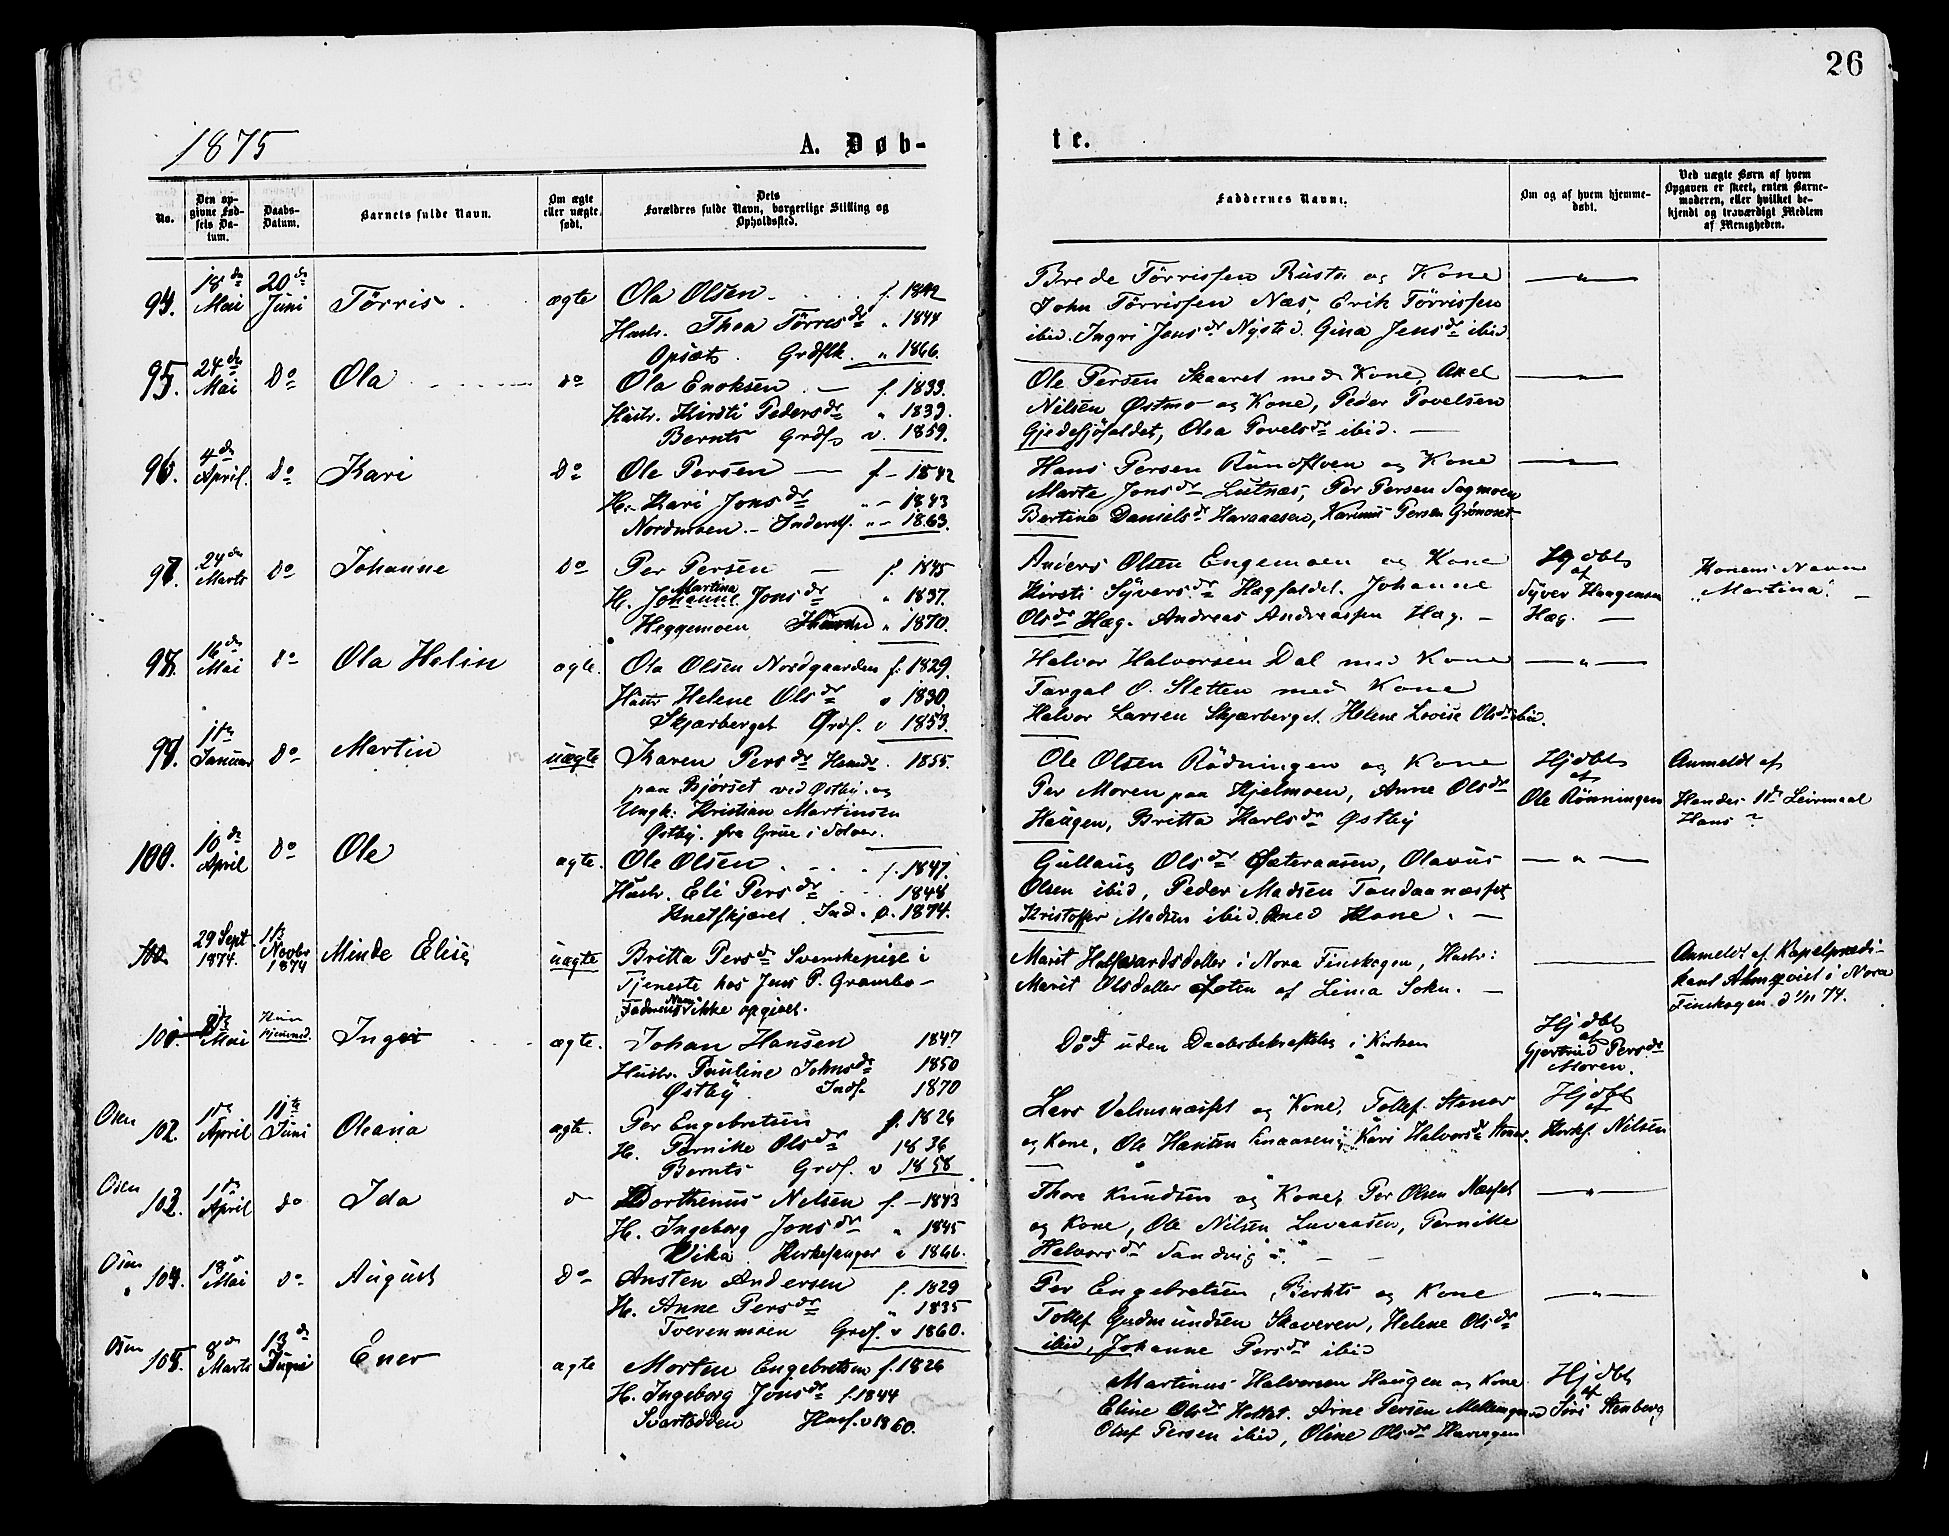 26
1875
A. Døb-
te.
No.
Den op-
givne Fød-
sels Da-
tum.
Daabs-
Datum.
Barnets fulde Navn.
Om ægte
eller uægte
født.
Dets
Forældres fulde Navn, borgerlige Stilling og
Opholdssted.
Faddernes Navne.
Om og af hvem hjemme-
døbt.
Ved uægte Børn af hvem
Opgaven er skeet, enten Barne-
moderen, eller hvilket be-
kjendt og troværdigt Medlem
af Menigheden.
94. 18de Mai 20de Juni Törris ægte
Ola Olsen f. 1842
Hustr. Thea Törresdr " 1844
Opsæt. Grdflk. " 1866.
Brede Törrissen Rusta og Kone
John Törrissen Næs, Erik Törrissen
ibid. Ingri Jonsdr Nysted. Gina Jensdr ibid.
95. 24de Mai Do Ola do
Ola Enoksen f. 1833.
Hustr. Kirsti Pedersdr " 1839.
Bernts Grdfs v. 1859.
Ole Persen Skaaret med Kone, Axel
Nilsen Østmo og Kone, Peder Povelsen
Gjedesjöfaldet, Olea Povelsdr ibid.
96. 4de April. Do Kari Do
Ole Persen f - 1842
H. Kari Jonsdr " - 1843
Nordmoen - Inderst. " - 1863.
Hans Persen Rundfloen og Kone
Marte Jonsdr Lutnæs, Per Persen Sagmoen
Bertine Danielsdr Haraaasen, Karinus Persen Grönoset
97. 24de Marts Do Johanne Do
Per Persen f. 1845
H. Johanne Martina Jonsdr " 1837.
Heggemoen " 1870.
Anders Olsen Engemoen og Kone
Kirsti Syversdr Hagfaldet. Johanne
Olsdr Hæg. Andreas Andreassen Hæg.
Hjdbt
af
Syver Haagensen
Hæg.
Konens Navn
"Martina".
98. 16de Mai do Ola Helin ægte.
Ola Olsen Nordgaarden f. 1829.
Hustr Helene Olsdr " 1830
Skjærberget Grdf. v 1853.
Halvor Halvorsen Dal med Kone
Targal O. Sletten med Kone
Halvor Larsen Skjærberget. Helene Lovise Olsdr ibid.
99. 11te Januar Do Martin uægte
Karen Persdr 1855.
paa Bjørset ved Østby. og
Ungk: Kristian Martinsen
Østby. fra Grue i Solver.
Ole Olsen Rödningen og Kone
Per Moren paa Hjelmoen, Anne Olsdr
Haugen, Britta Karlsdr Østby
Hjdbt
af
Ole Rönningen
Anmeldt af
Hendes 1ste Leiermaal
Hans ?
100. 10de April Do Ole ægte.
Ole Olsen f. 1847.
Hustr. Eli Persdr 1848
Knetskjæret. Ind. v. 1874.
Gullaug Olsdr Sæteraasen, Olavus
Olsen ibid, Peder Madsen Tandaanæsset
Kristoffer Madsen ibid. med Kone.
29 Sept. 1874. 1ste Novbr 1874 Minde Elise uægte
Britta Persdr Svenskepige i
Tjeneste hos Jens P. Grambo
Faderens Navn ikke opgivet.
Marit Halfvardsdotter i Nora Finskogen, Hustr:
Marit Olsdotter Søten af Lima Sokn.
Anmeldt af Kapelprædi-
kant Almqvist i Nora
Finskogen d 1/11 74.
101. Mai Kun hjemmed. Inger ægte.
Johan Hansen 1847
Hustr. Pauline Johnsdr 1850
Østby. Indf. 1870
Død uden Daabsbekræftelse i Kirken
Hjdbt
af
Gjertrud Persdr
Moren.
Osen 102. 1ste April 11te Juni Oleana ægte.
Per Engebretsen f. 1826
H. Pernike Olsdr 1836
Bernts Grdf. v 1858
Lars Valmsnæsset og Kone, Tollef Stenar
og Kone, Ole Hansen Enaasen, Kari Halvorsdr Stener.
Hjdbt
af
Kirkes. Nilsen
Osen 103. 1ste April do Ida
Dorthenus Nilsen f. - 1843
H. Ingeborg Jonsdr " 1845
Vika Kirkesanger v 1866.
Thore Knudsen og Kone, Per Olsen Næsset
og Kone, Ole Nilsen Luvaasen, Pernille
Halvorsdr Sandvig
Osen 104. 18de Mai do August Do
Austen Andersen f. 1829
H. Anne Persdr " 1835
Tverenmoen Grdf. v 1860.
Per Engebretsen, Bernts og Kone
Tollef Gudmundsen Skaveren, Helene Olsdr
ibid, Johanne Persdr ibid
Osen 105. 8de Marts 13de Juni Ener ægte
Morten Engebretsen f. 1826
H. Ingeborg Jonsdr f. 1844
Svartodden Husf. v 1860.
Martinus Halvorsen Haugen og Kone
Eline Olsdr Hattet. Arne Persen
Oluf Persen ibid, Oline Olsdr Haugen
Hjdbt
af
Siri Stenberg